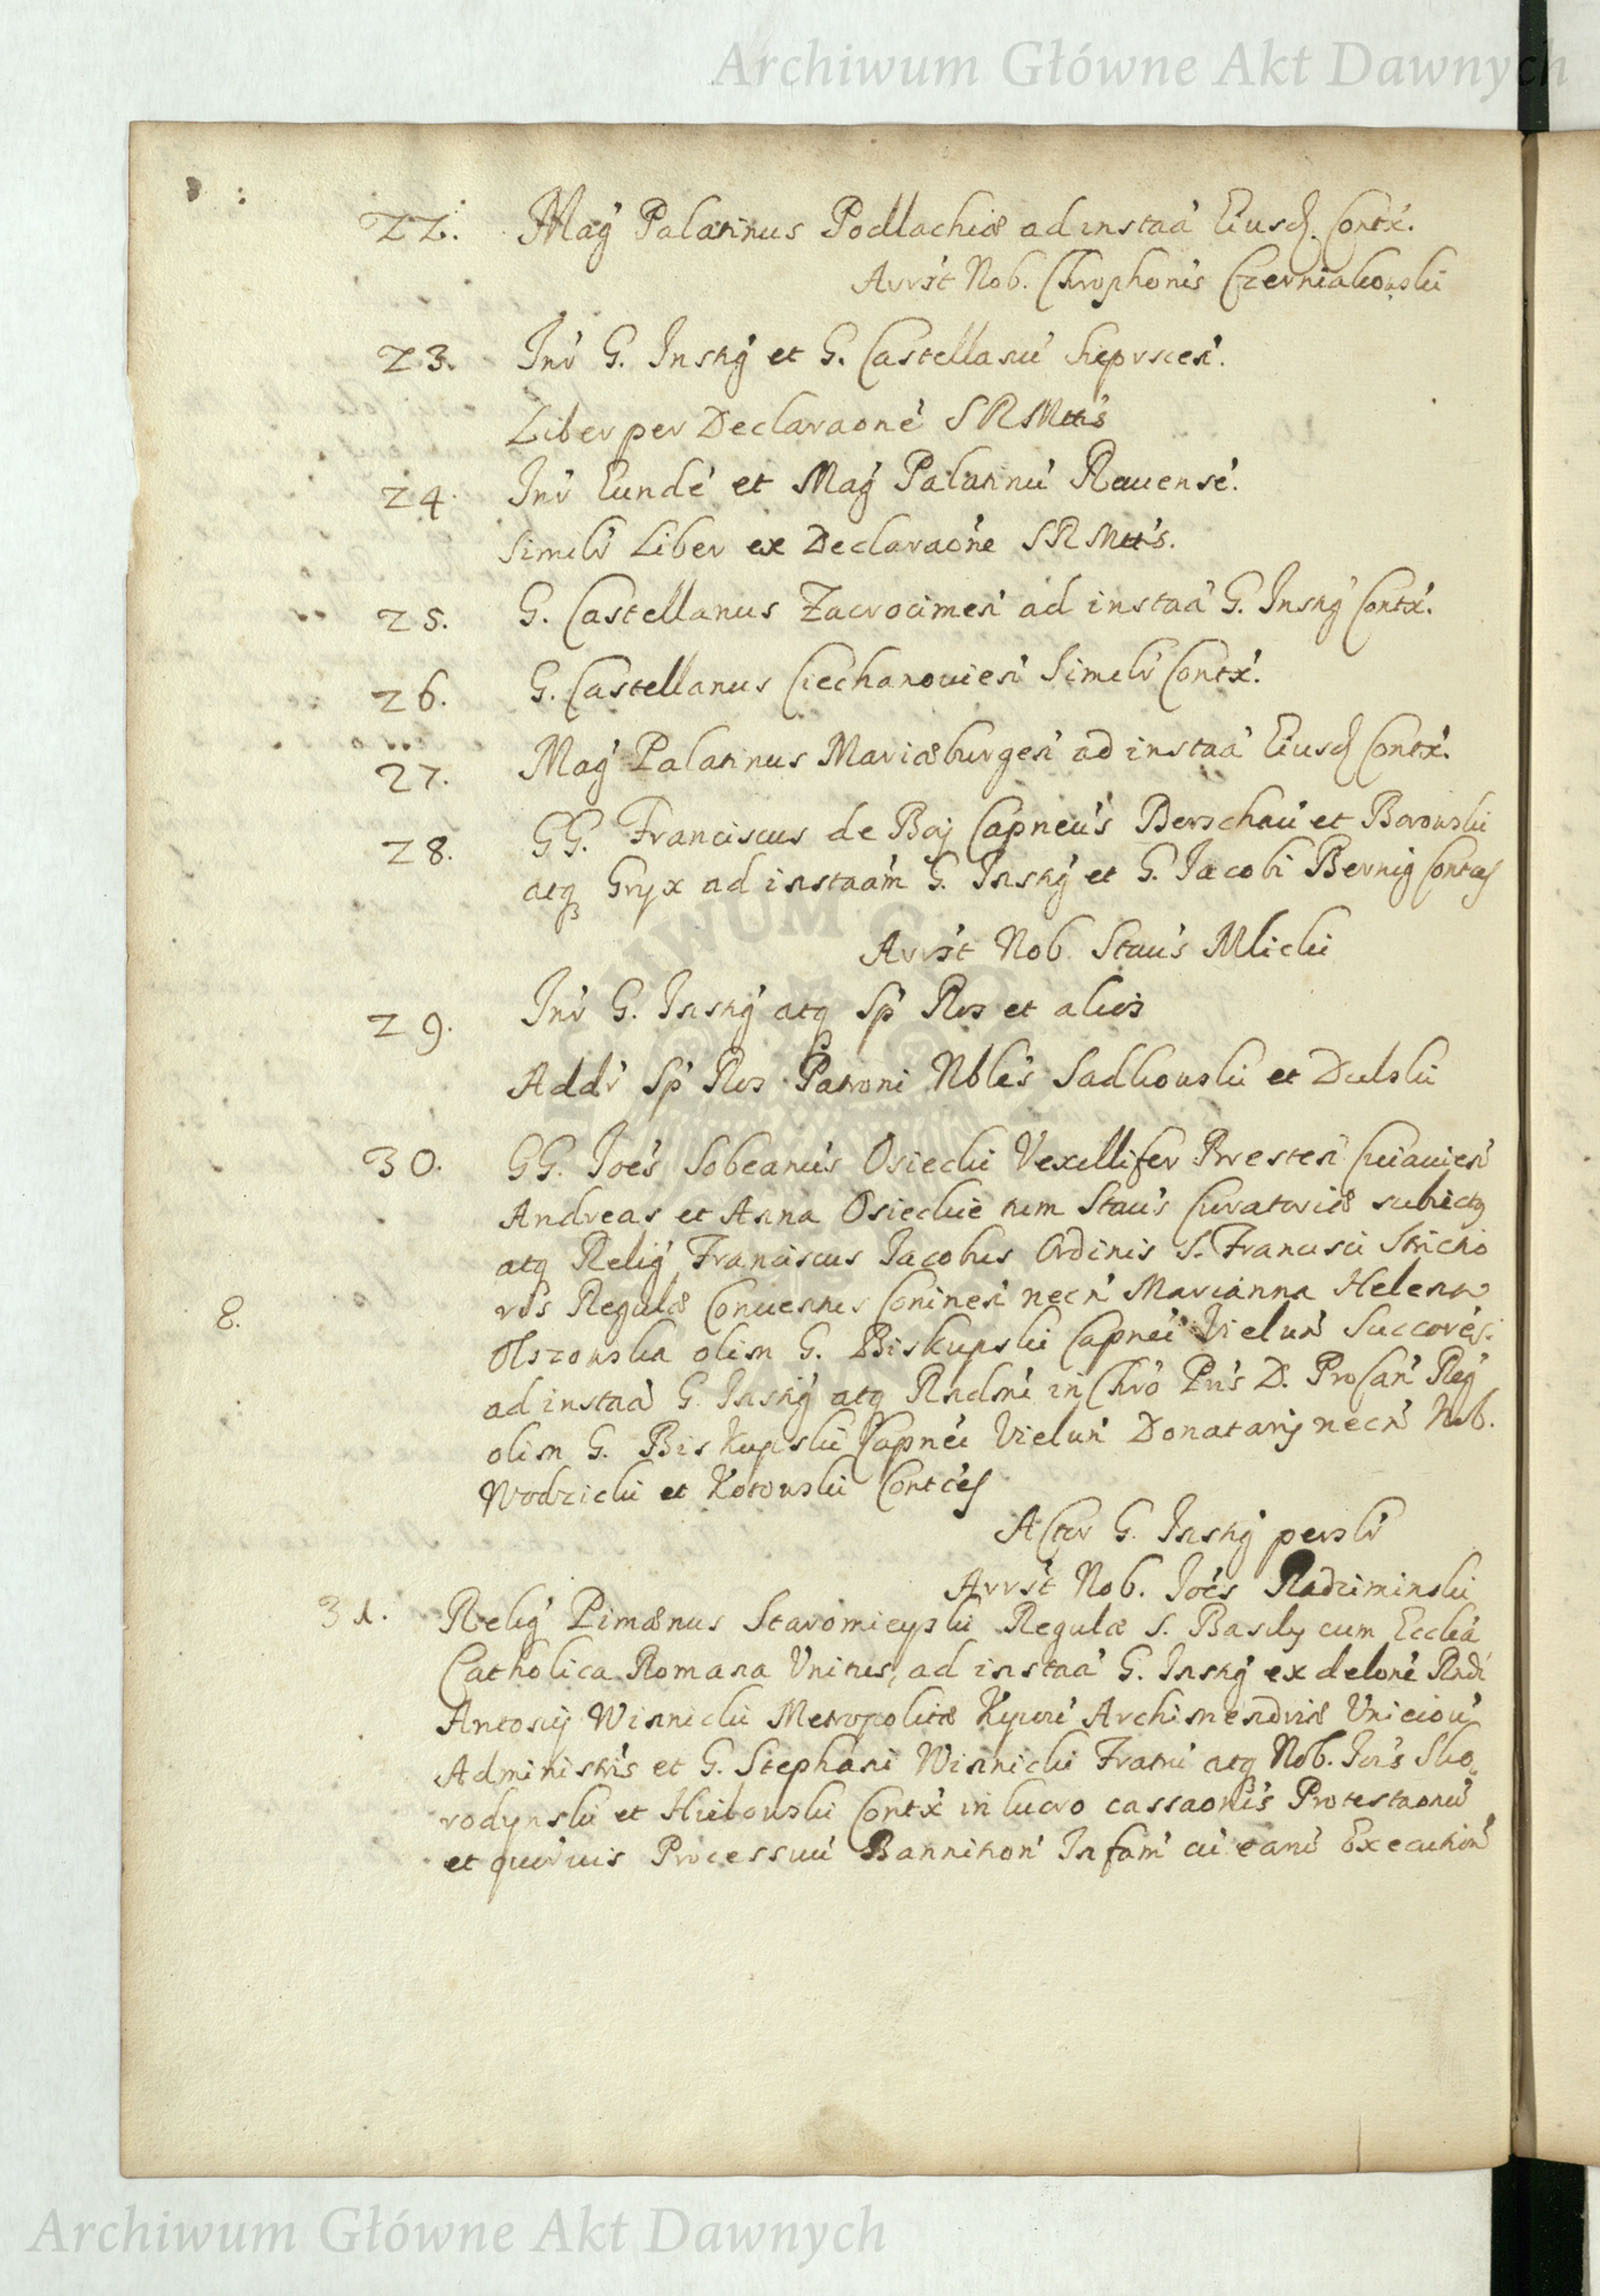 Archiwum Główne Akt Dawnych
22. Mag̃ Palatinus Podlachiæ ad instaã Eiusd. Contx̃.
Arrst̃ Nob. Chrophoris Czerniakowski
23. Inr̃ G. Instig̃ et G. Castellanũ Sieprscen̄.
Liber per Declaraonẽ SRMttis
24. Inr̃ Eundẽ et Mag̃ Palatinũ Rauensẽ.
Similr̃ Liber ex Declaraone SRMttis.
25. G. Castellanus Zacrocimen̄ ad instaã G. Instig̃ Contx̃.
26. G. Castellanus Ciechanouien̄ Similr̃ Contx̃.
27. Mag̃ Palatinus Mariæburgen̄ ad instaã Eiusd Contx̃.
28. GG. Franciscus de Baj Capneus Berschau et Borowski
atq Gryx ad instaam G. Instig̃ et G. Jacobi Bernig Contes
Arrst̃ Nob. Staus Mlicki
29. Inr̃ G. Instig̃ atq Sp̃ Ros et alios
Addr̃ Sp̃ Ros Patroni Nbles Sadkowski et Dulski
30. GG. Joes Sobeanus Osiecki Vexillifer Brresten̄ Cuiauien̄
Andreas et Anna Osieckie tum Staus Curatoriæ subiectq
atq Relig̃ Franciscus Jacobus Ordinis S. Francisci Stricrio
ris Regulæ Conuentus Coninen̄ necñ Marianna Helena
8.
Olszowska olim G. Biskupski Capnei Vielun̄ Succores
ad instaã G. Instig̃ atq Rndmi in Chro Pris D. ProCan̄ Reg̃
olim G. Biskupski Capnei Vielun̄ Donatarij necñ Nob.
Wodzicki et Kotowski Contces
ACtor G. Instig̃ perslr̃
Arrst̃ Nob. Joes Radziminski
31. Relig̃ Pimænus Staromieyski Regulæ S. Basily cum Ecclia
Catholica Romana Vnitus, ad instaã G. Instig̃ ex delone Rndi
Antonij Winnicki Metropolitæ Kyiou Archimendriæ Vnieiou
Administris et G. Stephani Winnicki Fratru atq Nob. Jois Sko-
rodynski et Hulowski Contx̃ in lucro cassaonis Protestaonu
et quoruis Processuu Bannition̄ Infam̃ cu earu Execution̄
Archiwum Główne Akt Dawnych